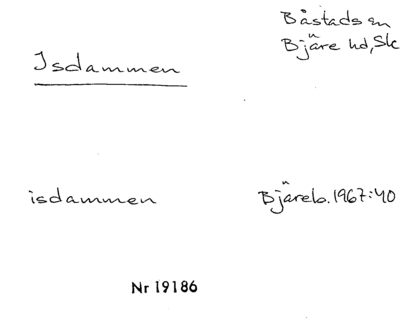 Båstads sn
Isdammen
Bjäre hd, Sk
isdammen
Bjäreb. 1967:40
Nr 19186